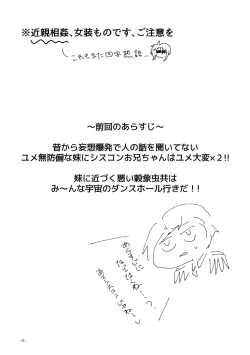 ※近親相姦、女装ものです、ご注意を
これもまた四字熟語…
～前回のあらすじ～
昔から妄想爆発で人の話を聞いてない
ユメ無防備な妹にシスコンお兄ちゃんはユメ大変×2!!
妹に近づく悪い穀象虫共は
み～んな宇宙のダンスホール行きだ!!